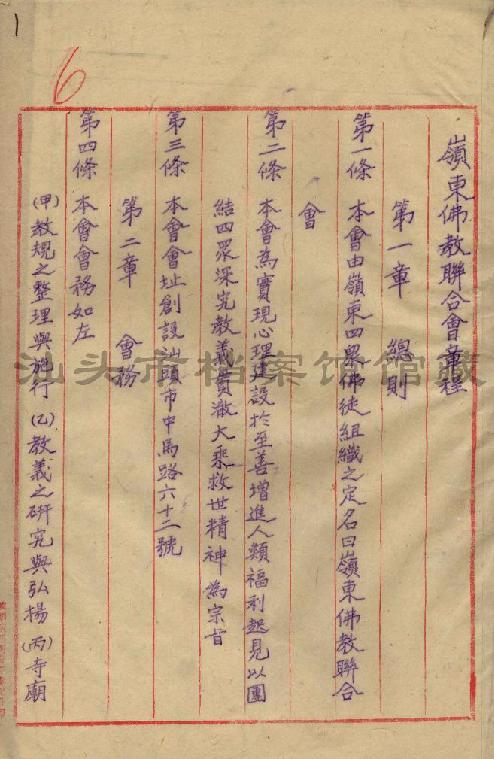 1
6
嶺東佛教聯合會章程
第一章 總則
第一條 本會由嶺東四眾佛徒組織之定名曰嶺東佛教聯合
會
第二條 本會為實現心理建設於至善增進人類福利起見以團
結四眾深究教義貫澈大乘救世精神為宗旨
第三條 本會會址創設汕頭市中馬路六十二號
第二章 會務
第四條 本會會務如左
(甲)教規之整理與施行(乙)教義之研究與弘楊(丙)寺廟
汕头市档案馆馆藏